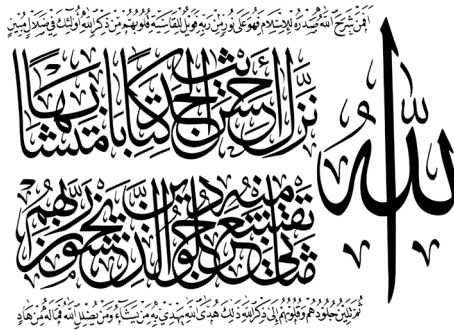 افمن شرح الله صدره للإسلام فهو على نور من ربه فويل للقاسية قلوبهم من ذكر الله أولئك في ضلال مبين
الله
نزل أحسن الحديث كتابا متشابها
مثاني تقشعر منه جلود الذين يخشون ربهم
ثم تلين جلودهم وقلوبهم إلى ذكر الله ذلك هدى الله يهدي به من يشاء ومن يضلل الله فما له من هاد